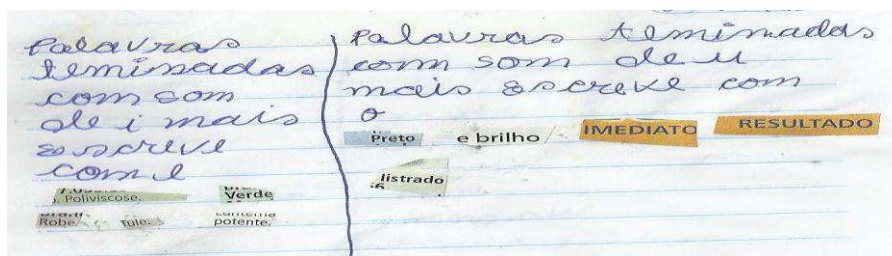 Palavras
teminadas
com som
de i mais
escreve
com e
Poliviscose, Verde
Robe Tule. potente,
Palavras teminadas
com som de u
mais escreve com
o
Preto e brilho IMEDIATO RESULTADO
listrado